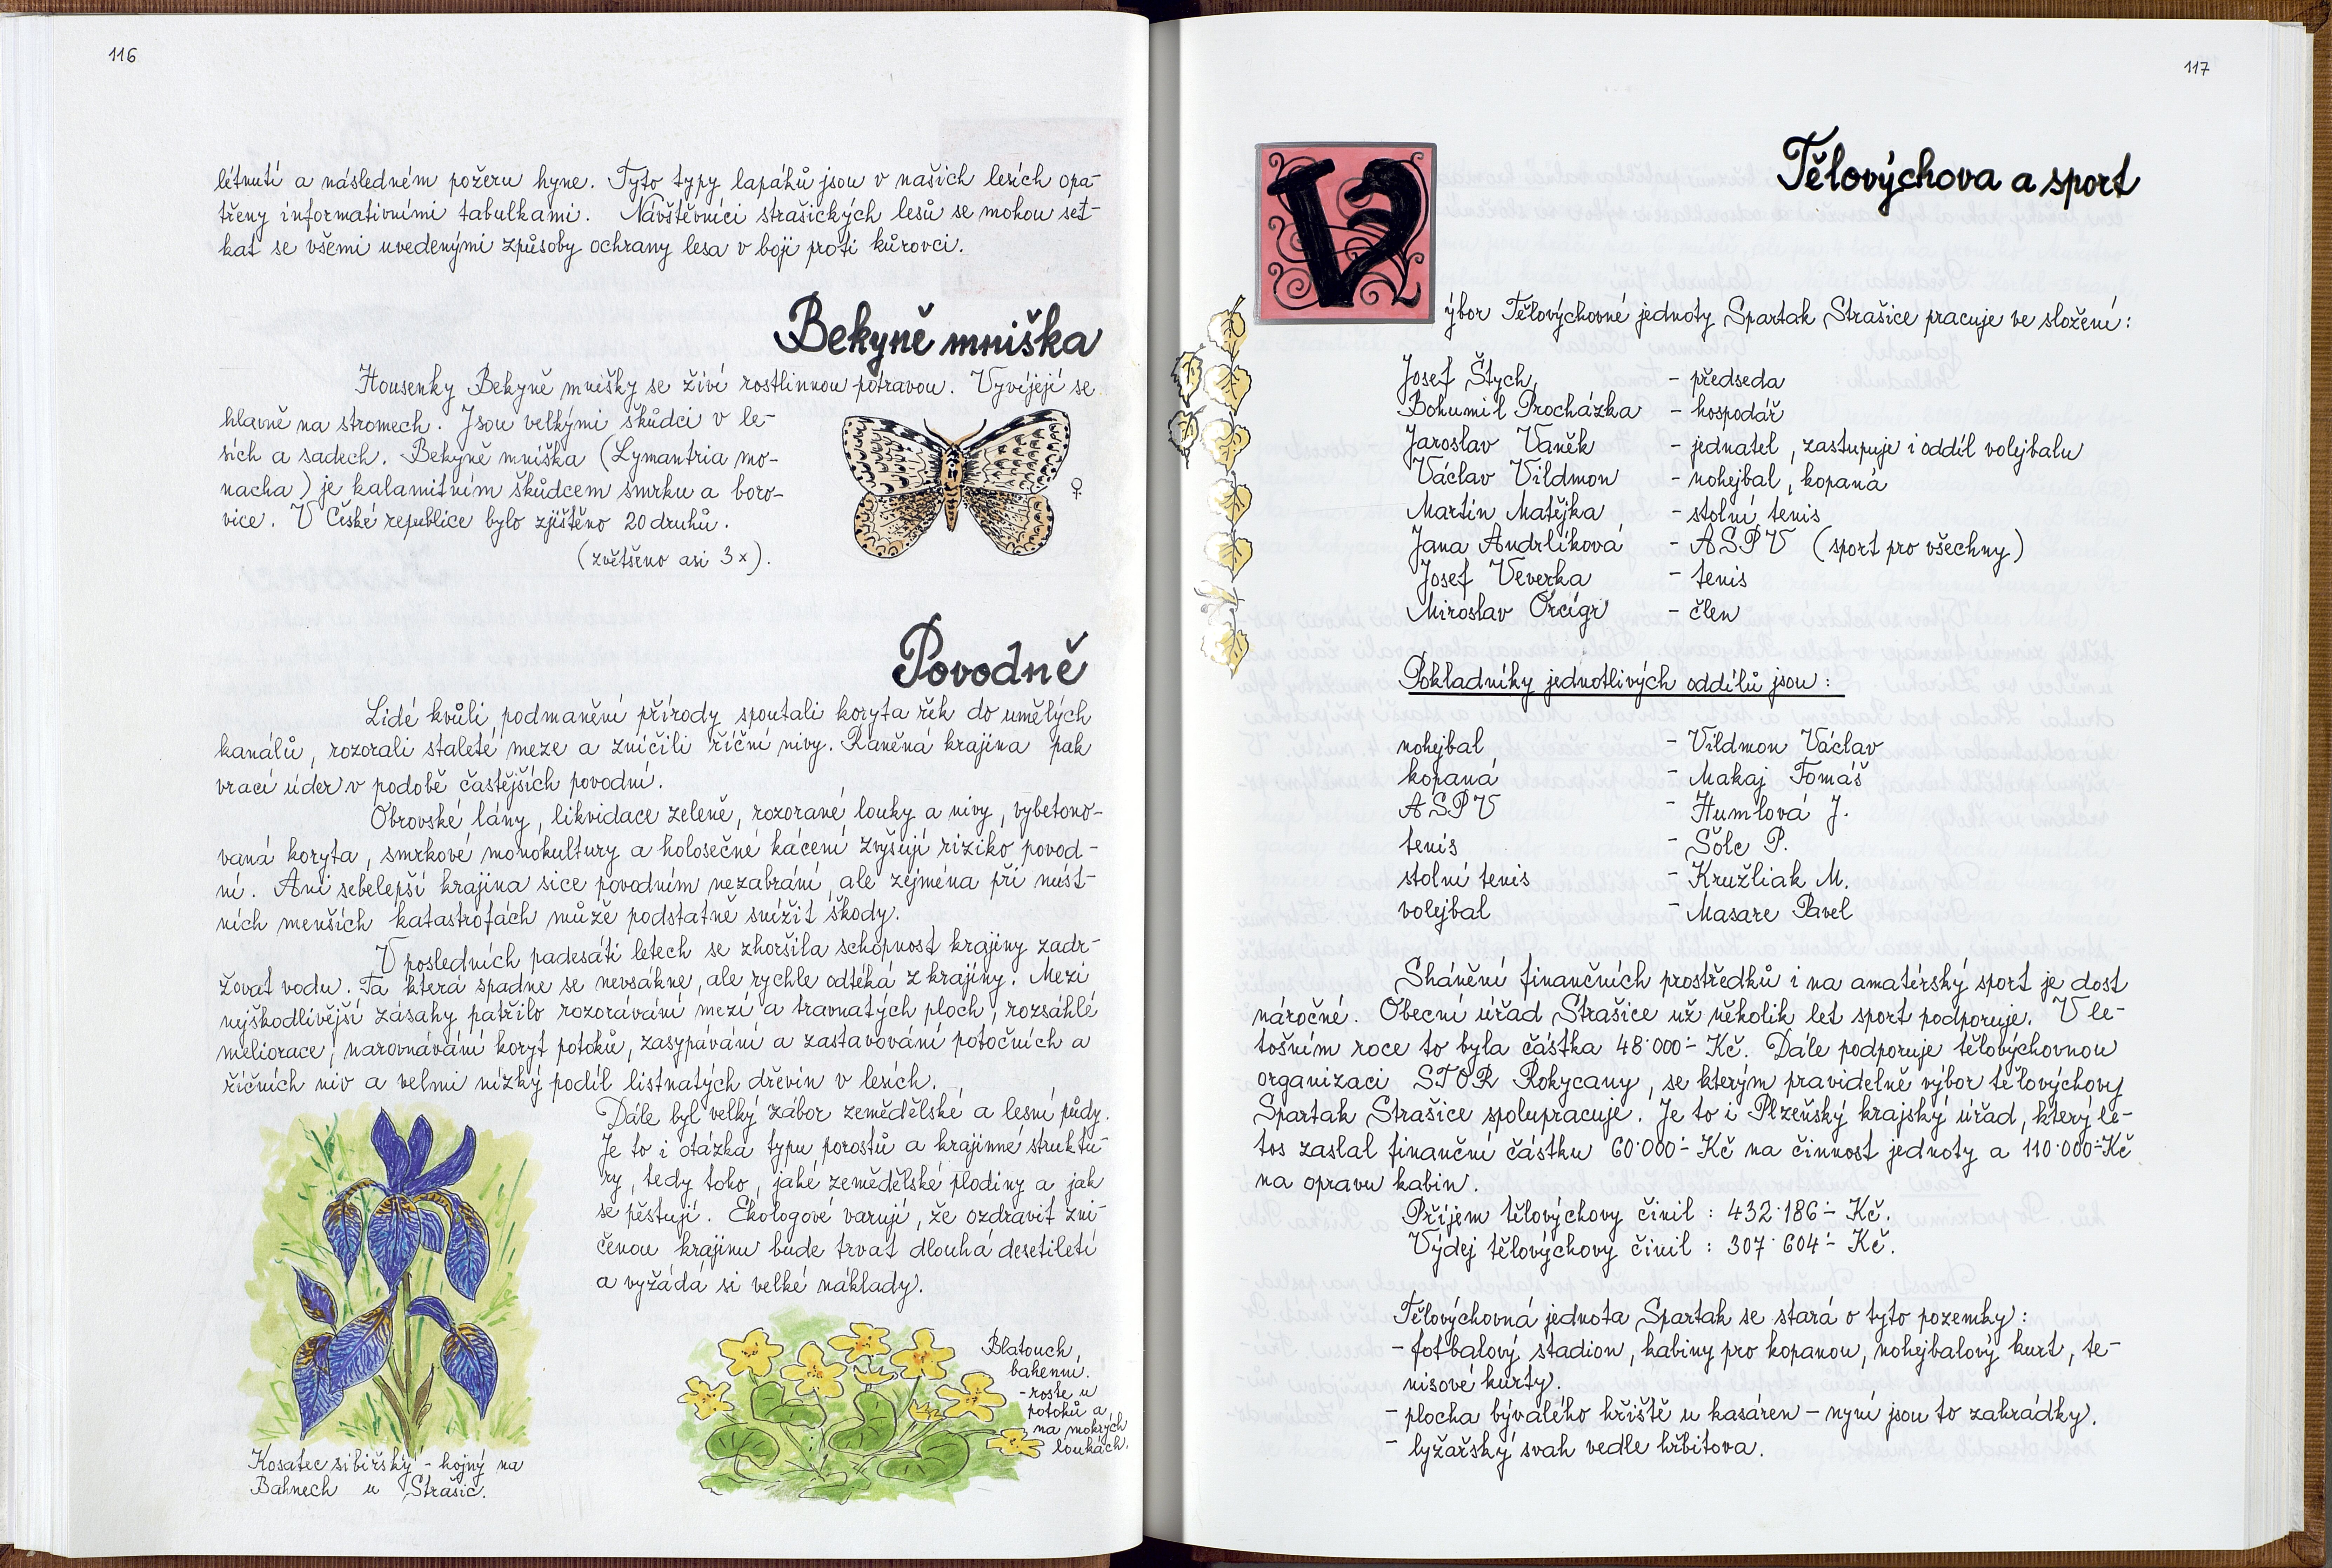 116
létnutí a následném požeru hyne. Tyto typy lapáků jsou v našich lesích opa-
třeny informativními tabulkami. Návštěvníci strašických lesů se mohou set-
kat se všemi uvedenými způsoby ochrany lesa v boji proti kůrovci.
Bekyně mniška
Housenky Bekyně mnišky se živí rostlinnou potravou. Vyvíjejí se
hlavně na stromech. Jsou velkými škůdci v le-
sích a sadech. Bekyně mniška (Lymantria mo-
nacha) je kalamitním škůdcem smrku a boro-
vice. V České republice bylo zjištěno 20 druhů.
(zvětšeno asi 3x).
♀
Povodně
Lidé kvůli podmanění přírody spoutali koryta řek do umělých
kanálů, rozorali staleté meze a zničili říční nivy. Raněná krajina pak
vrací úder v podobě častějších povodní.
Obrovské lány, likvidace zeleně, rozorané louky a nivy, vybetono-
vaná koryta, smrkové monokultury a holosečné kácení zvyšují riziko povod-
ní. Ani sebelepší krajina sice povodním nezabrání, ale zejména při míst-
ních menších katastrofách může podstatně snížit škody.
V posledních padesáti letech se zhoršila schopnost krajiny zadr-
žovat vodu. Ta která spadne se nevsákne, ale rychle odtéká z krajiny. Mezi
nejškodlivější zásahy patřilo rozorávání mezí a travnatých ploch, rozsáhlé
meliorace, narovnávání koryt potoků, zasypávání a zastavování potočních a
říčních niv a velmi nízký podíl listnatých dřevin v lesích.
Dále byl velký zábor zemědělské a lesní půdy.
Je to i otázka typu porostů a krajinné struktu-
ry, tedy toho, jaké zemědělské plodiny a jak
se pěstují. Ekologové varují, že ozdravit zni-
čenou krajinu bude trvat dlouhá desetiletí
a vyžádá si velké náklady.
Kosatec sibiřský - hojný na
Bahnech u Strašic.
Blatouch
bahenní.
- roste u
potoků a
na mokrých
loukách.
117
Tělovýchova a sport
Výbor Tělovýchovné jednoty Spartak Strašice pracuje ve složení:
Josef Štych - předseda
Bohumil Procházka - hospodář
Jaroslav Vaněk - jednatel, zastupuje i oddíl volejbalu
Václav Vildmon - nohejbal, kopaná
Martin Matějka - stolní tenis
Jana Andrlíková - ASPV (sport pro všechny)
Josef Veverka - tenis
Miroslav Orcígr - člen
Pokladníky jednotlivých oddílů jsou:
nohejbal - Vildmon Václav
kopaná - Makaj Tomáš
ASPV - Humlová J.
tenis - Šólc P.
stolní tenis - Kružliak M.
volejbal - Masare Pavel
Shánění finančních prostředků i na amatérský sport je dost
náročné. Obecní úřad Strašice už několik let sport podporuje. V le-
tošním roce to byla částka 48.000.- Kč. Dále podporuje tělovýchovnou
organizaci STOR Rokycany, se kterým pravidelně výbor tělovýchovy
Spartak Strašice spolupracuje. Je to i Plzeňský krajský úřad, který le-
tos zaslal finanční částku 60.000.- Kč na činnost jednoty a 110.000.- Kč
na opravu kabin.
Příjem tělovýchovy činil: 432.186.- Kč.
Výdej tělovýchovy činil: 307.604.- Kč.
Tělovýchovná jednota Spartak se stará o tyto pozemky:
- fotbalový stadion, kabiny pro kopanou, nohejbalový kurt, te-
nisové kurty.
- plocha bývalého hřiště u kasáren - nyní jsou to zahrádky.
- lyžařský svah vedle hřbitova.